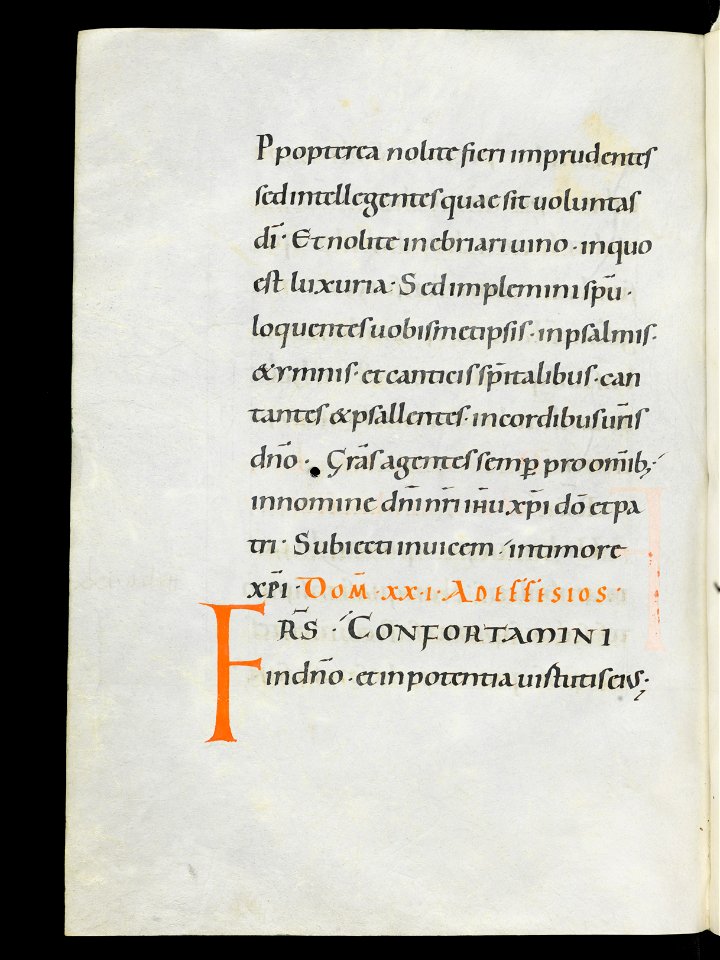 Ppopterea nolite fieri imprudentes
sed intellegentes quae sit uoluntas
dī· Et nolite inebriari uino · in quo
est luxuria· Sed implemini spū ·
loquentes uobismetipsis· in psalmis·
&ymnis· et canticis spītalibus· can
tantes &psallentes· in cordibus ur̄is
dn̄o · Gr̄as agentes semp̲ pro om̄ib;
in nomine dn̄i nr̄i ihū xp̄i dō et pa
tri· Subiecti inuicem · in timore
xp̄i· Dom̄ ·xx·i· Ad effesios·
FRS̄ · Confortamini
in dn̄o · et in potentia uirtutis eius·